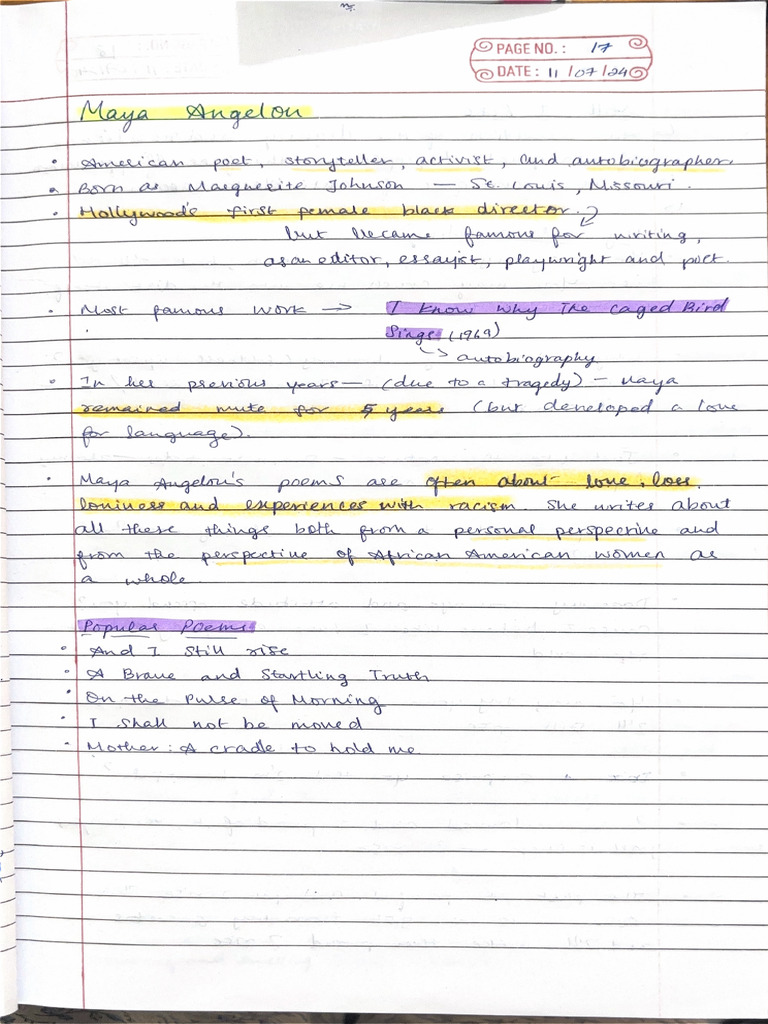 PAGE NO.: 17
DATE: 11/07/24
Maya Angelou
• American poet, storyteller, activist, and autobiographer.
• Born as Marguerite Johnson — St. Louis, Missouri.
• Hollywood's first female black director.
but became famous for writing,
as an editor, essayist, playwright and poet.
• Most famous work → I know why The caged Bird
Sings (1969)
→ autobiography
• In her previous years — (due to a tragedy) - Maya
remained mute for 5 years (but developed a love
for language).
• Maya Angelou's poems are often about love, loss,
loniness and experiences with racism. She writes about
all these things both from a personal perspective and
from the perspective of African American women as
a whole.
Popular Poems
• And I still rise
• A Brave and Startling Truth
• On the Pulse of Morning
• I shall not be moved
• Mother: A cradle to hold me.